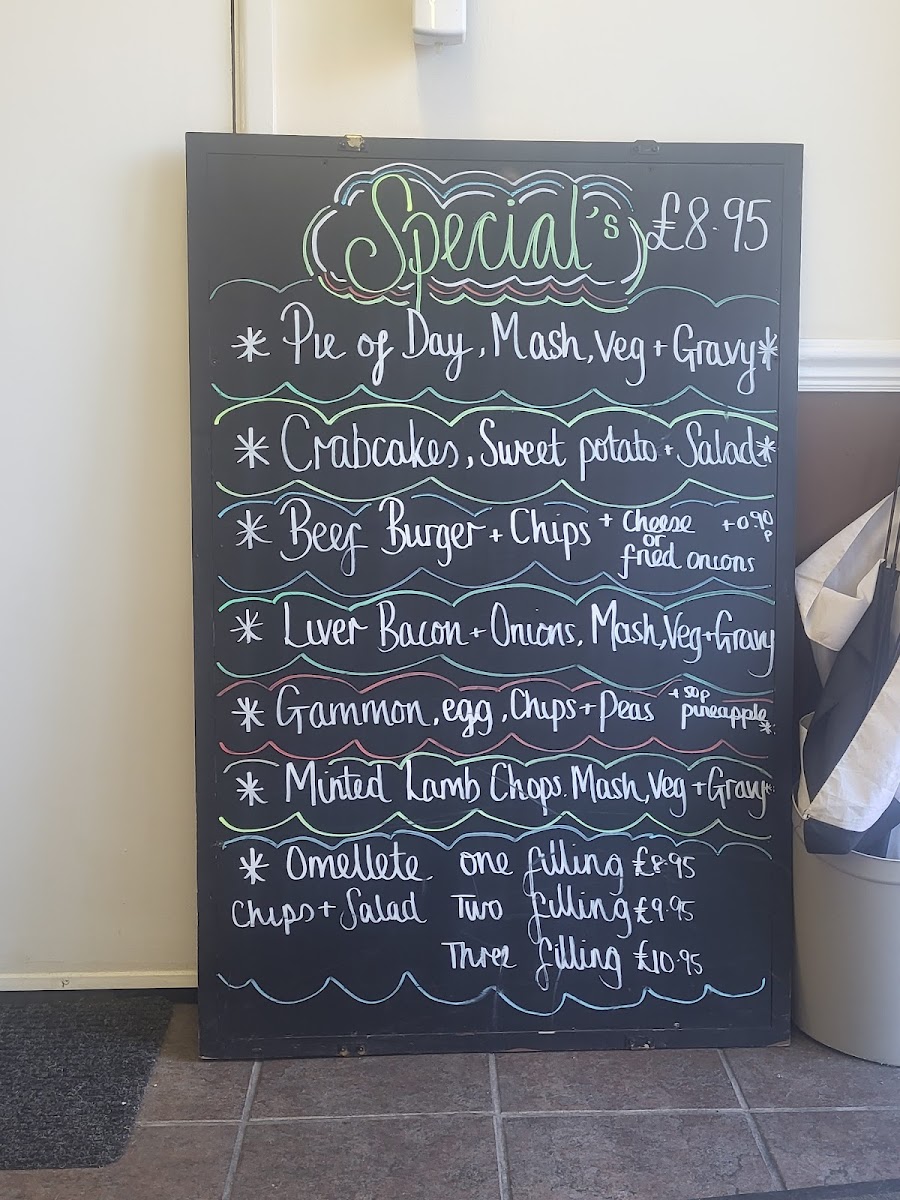 Special's £8.95
* Pie of Day, Mash, Veg + Gravy *
* Crabcakes, Sweet potato + Salad *
* Beef Burger + Chips + Cheese +0.90p
or
fried onions
* Liver Bacon + Onions, Mash, Veg + Gravy
* Gammon, egg, Chips + Peas + 50p
pineapple *
* Minted Lamb Chops. Mash, Veg + Gravy *
* Omellete one filling £8.95
Chips + Salad Two filling £9.95
Three filling £10.95